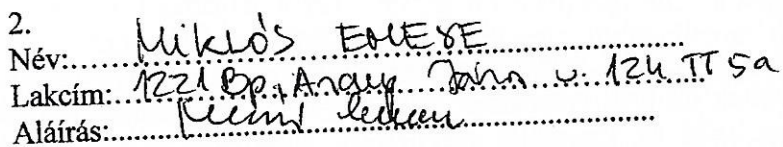 2.
Név: Miklós EMESE
Lakcím: 1221 Bp, Arany János u. 124 TT 5a
Aláírás: